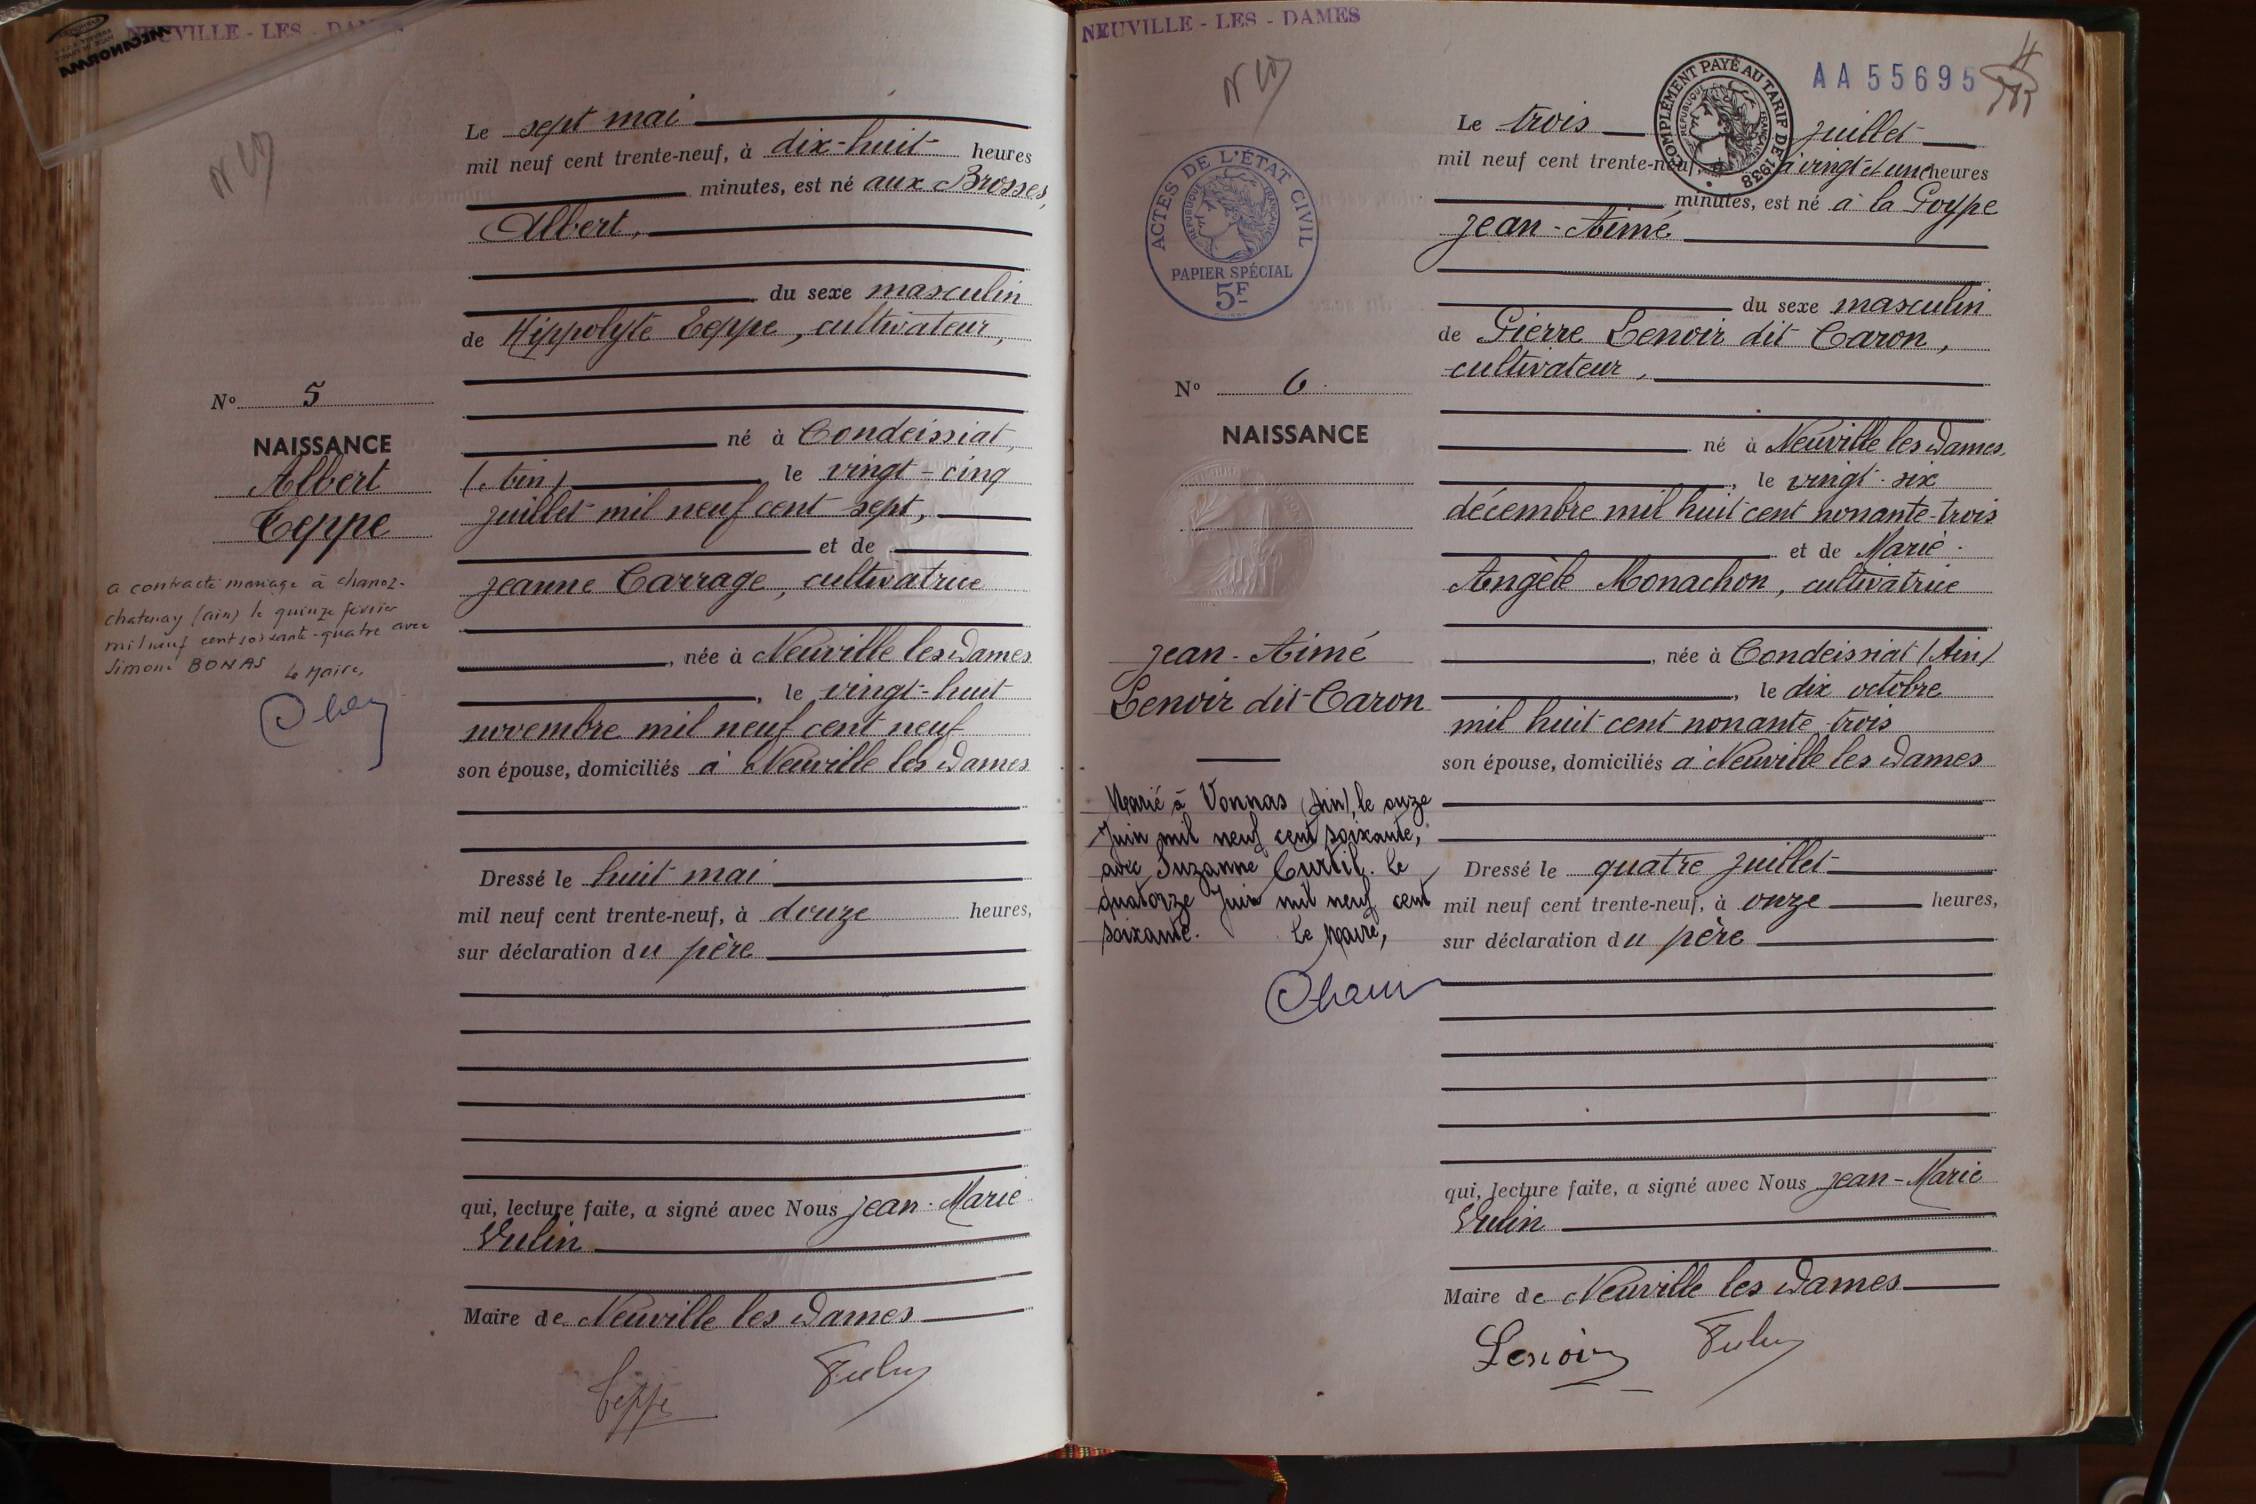 NEUVILLE - LES - DAMES
MECANORMA
Le sept mai
mil neuf cent trente-neuf, à dix-huit heures
minutes, est né aux Brosses,
Albert,
du sexe masculin
de Hippolyte Teppe, cultivateur,
né à Condeissiat,
(Ain) le vingt-cinq
juillet mil neuf cent sept,
et de
Jeanne Carrage, cultivatrice
, née à Neuville les Dames
, le vingt-huit
novembre mil neuf cent neuf
son épouse, domiciliés à Neuville les Dames
Dressé le huit mai
mil neuf cent trente-neuf, à douze heures,
sur déclaration du père
qui, lecture faite, a signé avec Nous Jean-Marie
Vulin
Maire de Neuville les Dames
Teppe
N° 5
NAISSANCE
Albert
Teppe
a contracté mariage à Chanoz-
chatenay (ain) le quinze février
mil neuf cent soixante-quatre avec
Simone BONAS Le Maire,
NEUVILLE - LES - DAMES
AA 55695
4
COMPLÉMENT PAYÉ AU TARIF DE 1938
RÉPUBLIQUE FRANÇAISE
ACTES DE L'ÉTAT CIVIL
RÉPUBLIQUE FRANÇAISE
PAPIER SPÉCIAL
5F
Le trois juillet
mil neuf cent trente-neuf, à vingt et une heures
minutes, est né à la Poype
Jean-Aimé
du sexe masculin
de Pierre Lenoir dit Caron,
cultivateur,
né à Neuville les Dames,
, le vingt-six
décembre mil huit cent nonante-trois
et de Marie-
Angèle Monachon, cultivatrice
, née à Condeissiat (Ain)
, le dix octobre
mil huit cent nonante-trois
son épouse, domiciliés à Neuville les Dames
Dressé le quatre juillet
mil neuf cent trente-neuf, à onze heures,
sur déclaration du père
qui, lecture faite, a signé avec Nous Jean-Marie
Vulin
Maire de Neuville les Dames
Lenoir
N° 6
NAISSANCE
Jean-Aimé
Lenoir dit Caron
Marié à Vonnas (Ain), le onze
Juin mil neuf cent soixante,
avec Suzanne Curtil. le
quatorze Juin mil neuf cent
soixante. Le Maire,